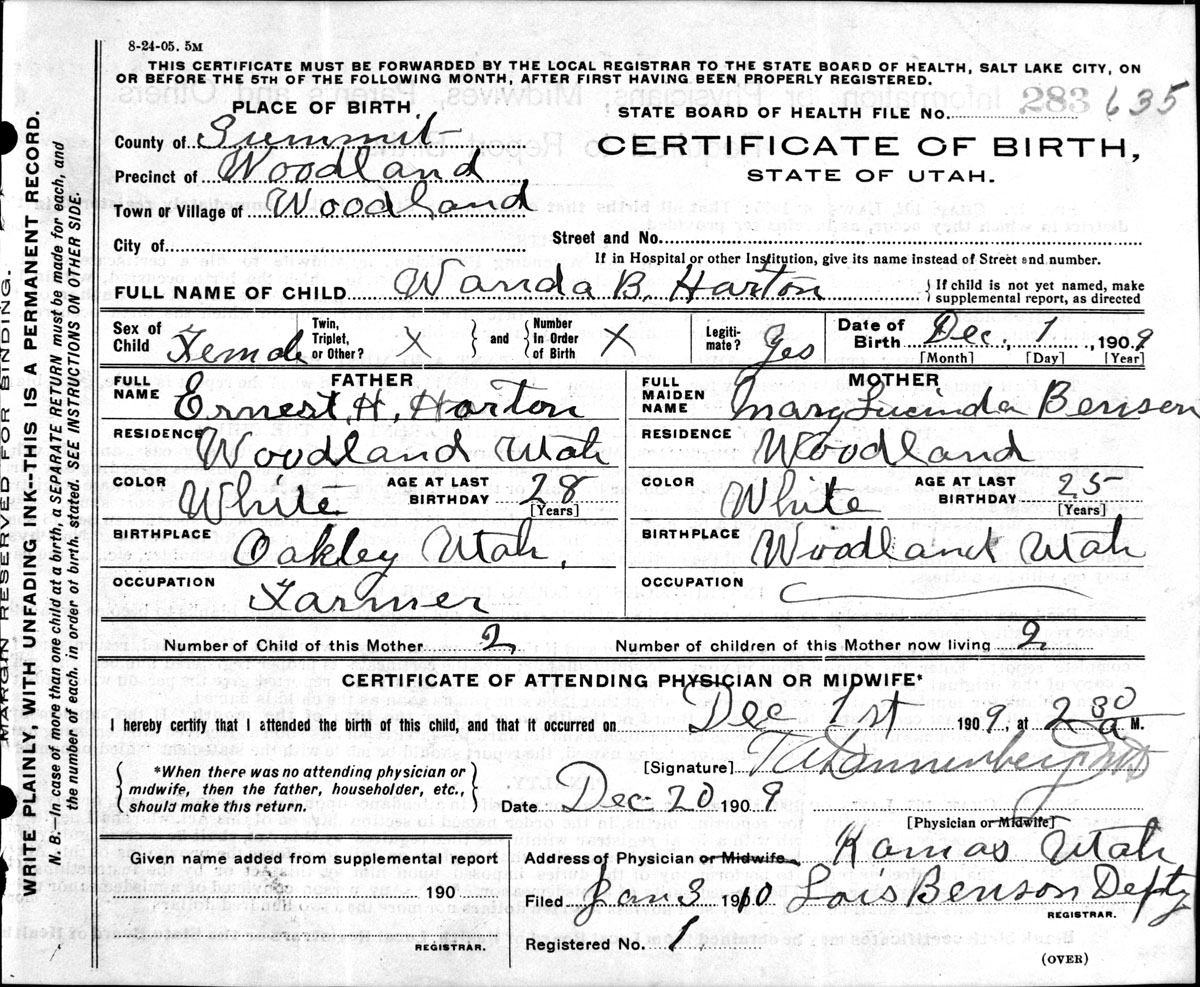 8-24-05. 5M
THIS CERTIFICATE MUST BE FORWARDED BY THE LOCAL REGISTRAR TO THE STATE BOARD OF HEALTH, SALT LAKE CITY, ON
OR BEFORE THE 5TH OF THE FOLLOWING MONTH, AFTER FIRST HAVING BEEN PROPERLY REGISTERED.
PLACE OF BIRTH
STATE BOARD OF HEALTH FILE NO. 283 635
County of Summit
CERTIFICATE OF BIRTH,
Precinct of Woodland
STATE OF UTAH.
Town or Village of Woodland
City of
Street and No.
If in Hospital or other Institution, give its name instead of Street and number.
FULL NAME OF CHILD Wanda B. Horton
{ If child is not yet named, make
supplemental report, as directed
Sex of Child Female
Twin, Triplet, or Other? X } and { Number In Order of Birth X
Legiti-mate? Yes
Date of Birth Dec. 1, 1909
[Month] [Day] [Year]
FATHER
FULL NAME Ernest H. Horton
RESIDENCE Woodland Utah
COLOR White AGE AT LAST BIRTHDAY 28 [Years]
BIRTHPLACE Oakley Utah,
OCCUPATION Farmer
MOTHER
FULL MAIDEN NAME Mary Lucinda Benson
RESIDENCE Woodland
COLOR White AGE AT LAST BIRTHDAY 25 [Years]
BIRTHPLACE Woodland Utah
OCCUPATION
Number of Child of this Mother 2 Number of children of this Mother now living 2
CERTIFICATE OF ATTENDING PHYSICIAN OR MIDWIFE*
I hereby certify that I attended the birth of this child, and that it occurred on Dec 1st 1909, at 2 30 a M.
{ *When there was no attending physician or
midwife, then the father, householder, etc.,
should make this return. }
[Signature] Dannenberg MD
Date Dec 20 1909
[Physician or Midwife]
Given name added from supplemental report
190
REGISTRAR.
Address of Physician or Midwife Kamas Utah
Filed Jan 3 1910 Lois Benson Depty
REGISTRAR.
Registered No. 1
(OVER)
MARGIN RESERVED FOR BINDING.
WRITE PLAINLY, WITH UNFADING INK--THIS IS A PERMANENT RECORD.
N. B.—In case of more than one child at a birth, a SEPARATE RETURN must be made for each, and
the number of each, in order of birth, stated. SEE INSTRUCTIONS ON OTHER SIDE.